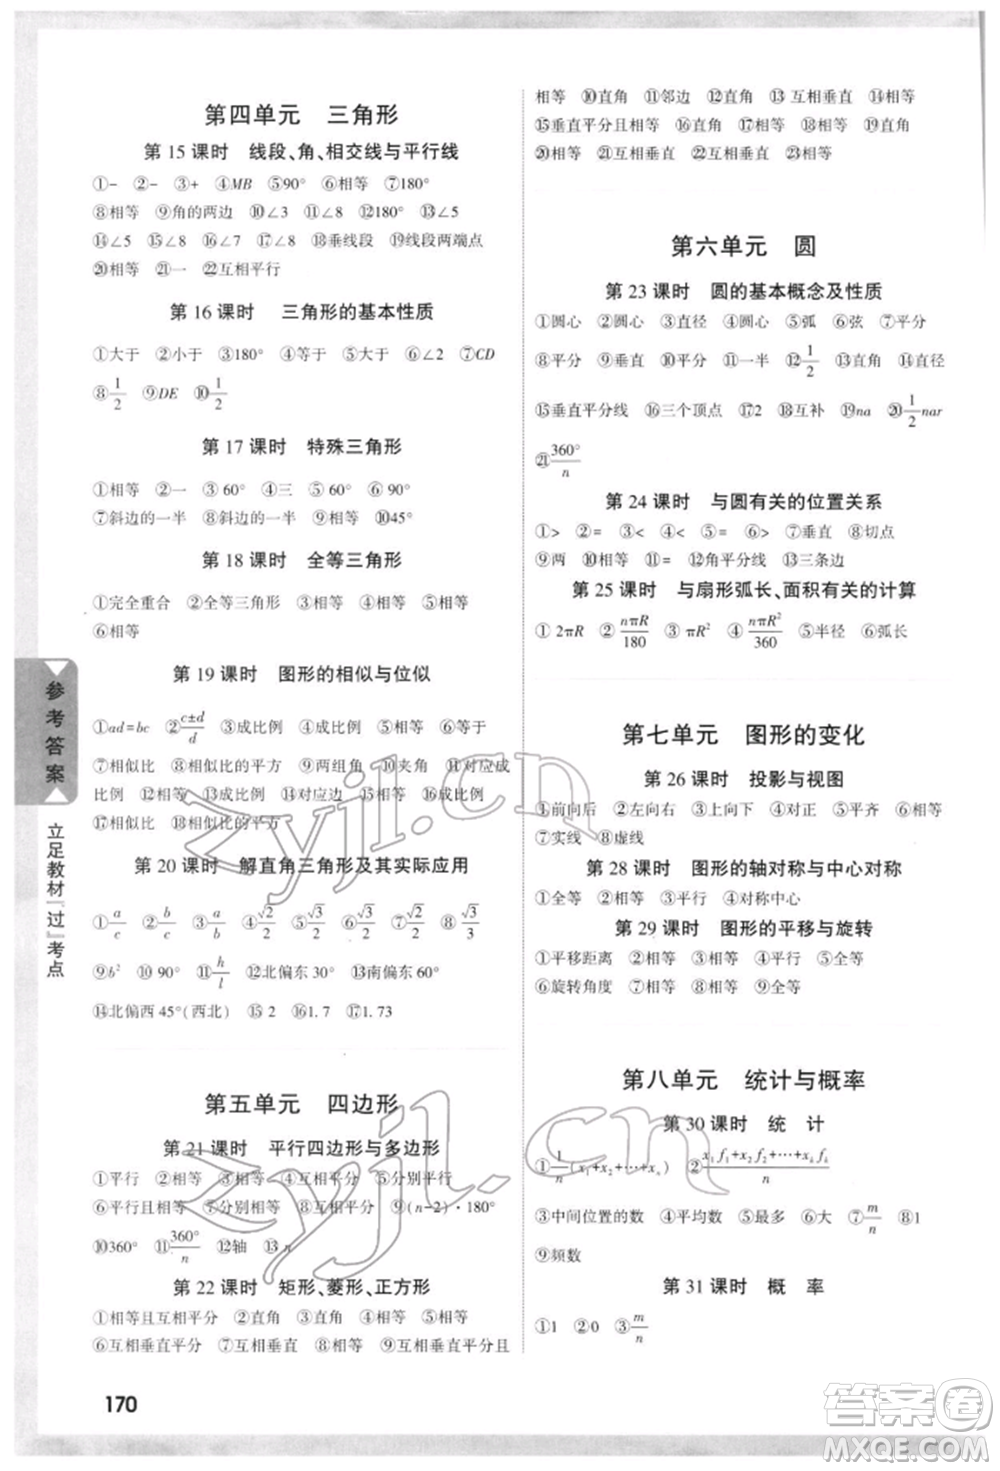 第四单元 三角形
第 15 课时 线段、角、相交线与平行线
①- ②- ③+ ④MB ⑤90° ⑥相等 ⑦180°
⑧相等 ⑨角的两边 ⑩∠3 ⑪∠4 ⑫180° ⑬∠5
⑭∠5 ⑮∠8 ⑯∠6 ⑰∠8 ⑱垂线段 ⑲线段两端点
⑳相等 ㉑一 ㉒互相平行
第 16 课时 三角形的基本性质
①大于 ②小于 ③180° ④等于 ⑤大于 ⑥∠2 ⑦CD
⑧1/2 ⑨DE ⑩1/2
第 17 课时 特殊三角形
①相等 ②一 ③60° ④三 ⑤60° ⑥60°
⑦斜边的一半 ⑧斜边的一半 ⑨相等 ⑩45°
第 18 课时 全等三角形
①完全重合 ②全等三角形 ③相等 ④相等 ⑤相等
⑥相等
第 19 课时 图形的相似与位似
①ad=bc ②(c±d)/d ③成比例 ④成比例 ⑤相等 ⑥等于
⑦相似比 ⑧相似比的平方 ⑨两组角 ⑩夹角 ⑪对应成
比例 ⑫相等 ⑬成比例 ⑭对应边 ⑮相等 ⑯成比例
⑰相似比 ⑱相似比的平方
第 20 课时 解直角三角形及其实际应用
①a/c ②b/c ③a/b ④√2/2 ⑤√3/2 ⑥√2/2 ⑦√3/2 ⑧√3/3
⑨b² ⑩90° ⑪h/l ⑫北偏东 30° ⑬南偏东 60°
⑭北偏西 45°(西北) ⑮2 ⑯1.7 ⑰1.73
第五单元 四边形
第 21 课时 平行四边形与多边形
①平行 ②相等 ③相等 ④互相平分 ⑤分别平行
⑥平行且相等 ⑦分别相等 ⑧互相平分 ⑨(n-2)·180°
⑩360° ⑪360°/n ⑫轴 ⑬n
第 22 课时 矩形、菱形、正方形
①相等且互相平分 ②直角 ③直角 ④相等 ⑤相等
⑥互相垂直平分 ⑦互相垂直 ⑧相等 ⑨互相垂直平分且
相等 ⑩直角 ⑪邻边 ⑫直角 ⑬互相垂直 ⑭相等
⑮垂直平分且相等 ⑯直角 ⑰相等 ⑱直角 ⑲相等
⑳相等 ㉑互相垂直 ㉒互相垂直 ㉓相等
第六单元 圆
第 23 课时 圆的基本概念及性质
①圆心 ②圆心 ③直径 ④圆心 ⑤弧 ⑥弦 ⑦平分
⑧平分 ⑨垂直 ⑩相等 ⑪一半 ⑫1/2 ⑬直角 ⑭直径
⑮垂直平分线 ⑯三个顶点 ⑰2 ⑱互补 ⑲na ⑳1/2nar
㉑360°/n
第 24 课时 与圆有关的位置关系
①> ②= ③< ④< ⑤= ⑥> ⑦垂直 ⑧切点
⑨两 ⑩相等 ⑪= ⑫角平分线 ⑬三条边
第 25 课时 与扇形弧长、面积有关的计算
①2πR ②nπR/180 ③πR² ④nπR²/360 ⑤半径 ⑥弧长
第七单元 图形的变化
第 26 课时 投影与视图
①前向后 ②左向右 ③上向下 ④对正 ⑤平齐 ⑥相等
⑦实线 ⑧虚线
第 28 课时 图形的轴对称与中心对称
①全等 ②相等 ③平行 ④对称中心
第 29 课时 图形的平移与旋转
①平移距离 ②相等 ③相等 ④平行 ⑤全等
⑥旋转角度 ⑦相等 ⑧相等 ⑨全等
第八单元 统计与概率
第 30 课时 统 计
①1/n(x₁+x₂+⋯+xₙ) ②(x₁f₁+x₂f₂+⋯+xₖfₖ)/n
③中间位置的数 ④平均数 ⑤最多 ⑥大 ⑦m/n ⑧1
⑨频数
第 31 课时 概 率
①1 ②0 ③m/n
参考答案
立足教材『过』考点
170
zyjl.cn
zyjl.cn
答案圈
MXQE.COM